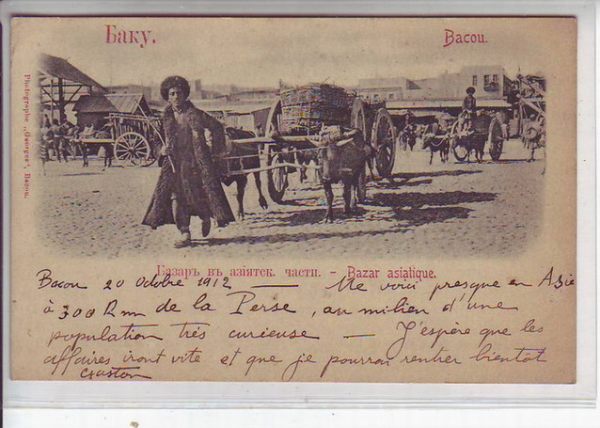 Баку.
Bacou.
Photographe „Georges", Bacou.
Базаръ въ азіятск. части. - Bazar asiatique.
Bacou 20 Octobre 1912 — Me voici presque en Asie
à 300 Km de la Perse, au milieu d'une
population très curieuse — J'espère que les
affaires iront vite et que je pourrai rentrer bientôt
Gaston